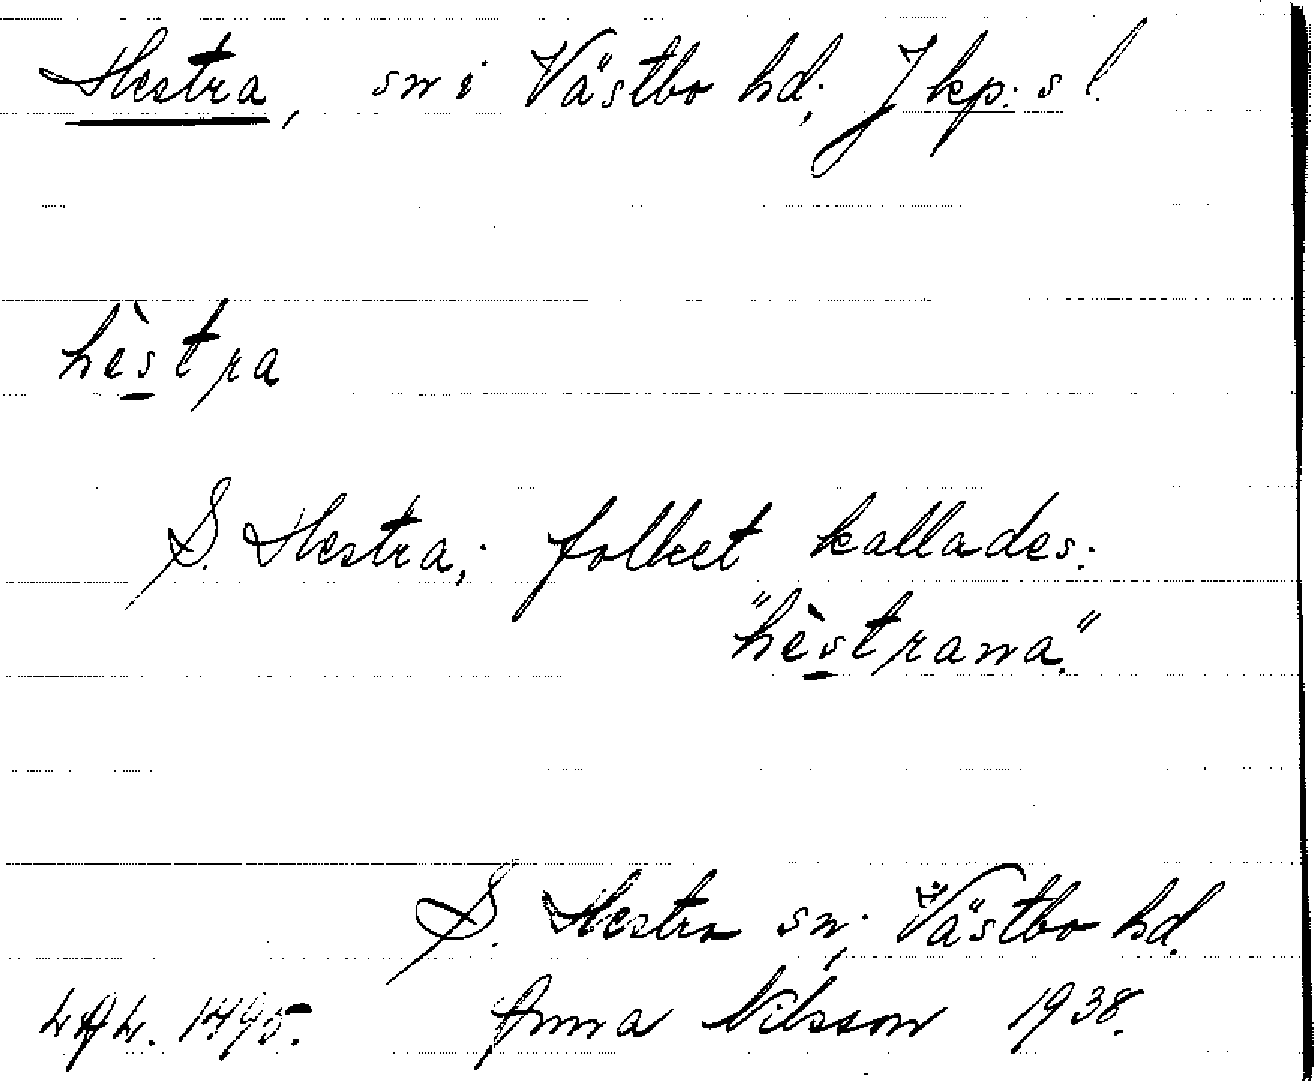 Hestra, sn i Västbo hd; Jkp:s l.
hèstra
S. Hestra; folket kallades:
"hèstrana".
S. Hestra sn; Västbo hd.
Anna Nilsson 1938.